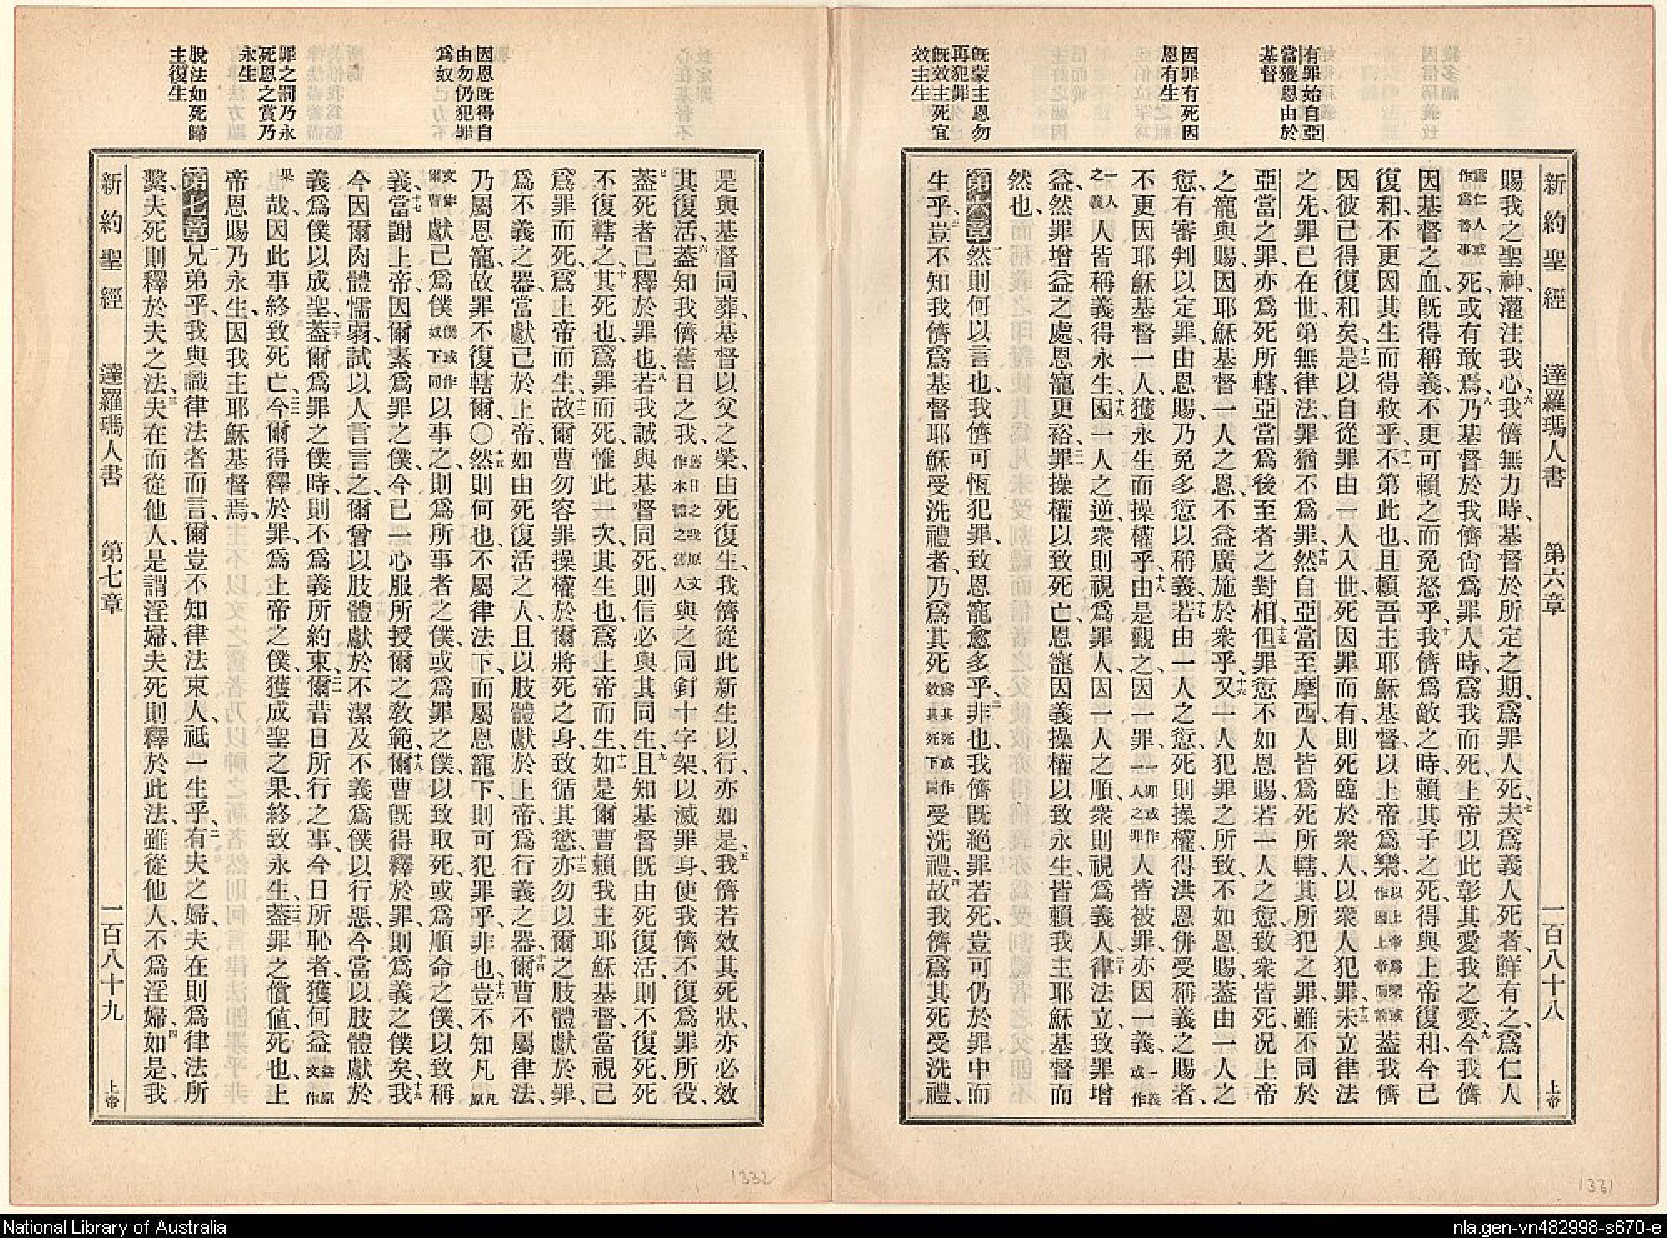 有罪始自亞
當獲恩由於
基督
因罪有死因
恩有生
既蒙主恩勿
再犯罪
既效主死宜
效主生
新約聖經 達羅瑪人書 第六章 一百八十八 上帝
賜我之聖神灌注我心六我儕無力時基督於所定之期爲罪人死七夫爲義人死者鮮有之爲仁人
爲仁人或作爲善事死或有敢焉八乃基督於我儕尚爲罪人時爲我而死上帝以此彰其愛我之愛九今我儕
因基督之血既得稱義不更可賴之而免怒乎十我儕爲敵之時賴其子之死得與上帝復和今已
復和不更因其生而得救乎十一不第此也且賴吾主耶穌基督以上帝爲樂以上帝爲樂或作因上帝而誇蓋我儕
因彼已得復和矣十二是以自從罪由一人入世死因罪而有則死臨於衆人以衆人犯罪十三未立律法
之先罪已在世第無律法罪猶不爲罪十四然自亞當至摩西人皆爲死所轄其所犯之罪雖不同於
亞當之罪亦爲死所轄亞當爲後至者之對相十五但罪愆不如恩賜若一人之愆致衆皆死況上帝
之寵與賜因耶穌基督一人之恩不益廣施於衆乎十六又一人犯罪之所致不如恩賜蓋由一人之
愆有審判以定罪由恩賜乃免多愆以稱義十七若由一人之愆死則操權得洪恩併受稱義之賜者
不更因耶穌基督一人獲永生而操權乎十八由是觀之因一罪一罪或作一人之罪人皆被罪亦因一義一義或作
一人之義人皆稱義得永生十九因一人之逆衆則視爲罪人因一人之順衆則視爲義人二十律法立致罪增
益然罪增益之處恩寵更裕二一罪操權以致死亡恩寵因義操權以致永生皆賴我主耶穌基督而
然也
第六章一然則何以言也我儕可恆犯罪致恩寵愈多乎二非也我儕既絕罪若死豈可仍於罪中而
生乎三豈不知我儕爲基督耶穌受洗禮者乃爲其死爲其死或作效其死下同受洗禮四故我儕爲其死受洗禮
因恩既得自
由勿仍犯罪
爲奴
罪之罰乃永
死恩之賞乃
永生
脫法如死歸
主復生
是與基督同葬基督以父之榮由死復生我儕從此新生以行亦如是五我儕若效其死狀亦必效
其復活六蓋知我儕舊日之我舊日之我原文作本體之舊人與之同釘十字架以滅罪身使我儕不復爲罪所役
七蓋死者已釋於罪也八若我誠與基督同死則信必與其同生九且知基督既由死復活則不復死死
不復轄之十其死也爲罪而死惟此一次其生也爲上帝而生十一如是爾曹賴我主耶穌基督當視已
爲罪而死爲上帝而生十二故爾曹勿容罪操權於爾將死之身致循其慾十三亦勿以爾之肢體獻於罪
爲不義之器當獻己於上帝如由死復活之人且以肢體獻於上帝爲行義之器十四爾曹不屬律法
乃屬恩寵故罪不復轄爾〇十五然則何也不屬律法下而屬恩寵下則可犯罪乎非也十六豈不知凡凡原
文作爾曹獻己爲僕僕或作奴下同以事之則爲所事者之僕或爲罪之僕以致取死或爲順命之僕以致稱
義十七當謝上帝因爾素爲罪之僕今已一心服所授爾之教範十八爾曹既得釋於罪則爲義之僕矣十九我
今因爾肉體懦弱試以人言言之爾曾以肢體獻於不潔及不義爲僕以行惡今當以肢體獻於
義爲僕以成聖二十蓋爾爲罪之僕時則不爲義所約束二一爾昔日所行之事今日所恥者獲何益益原文作
果哉因此事終致死亡二二今爾得釋於罪爲上帝之僕獲成聖之果終致永生二三蓋罪之價值死也上
帝恩賜乃永生因我主耶穌基督焉
第七章一兄弟乎我與識律法者而言爾豈不知律法束人祗一生乎二有夫之婦夫在則爲律法所
繫夫死則釋於夫之法三夫在而從他人是謂淫婦夫死則釋於此法雖從他人不爲淫婦四如是我
新約聖經 達羅瑪人書 第七章 一百八十九 上帝
1332
1331
National Library of Australia
nla.gen-vn482998-s670-e